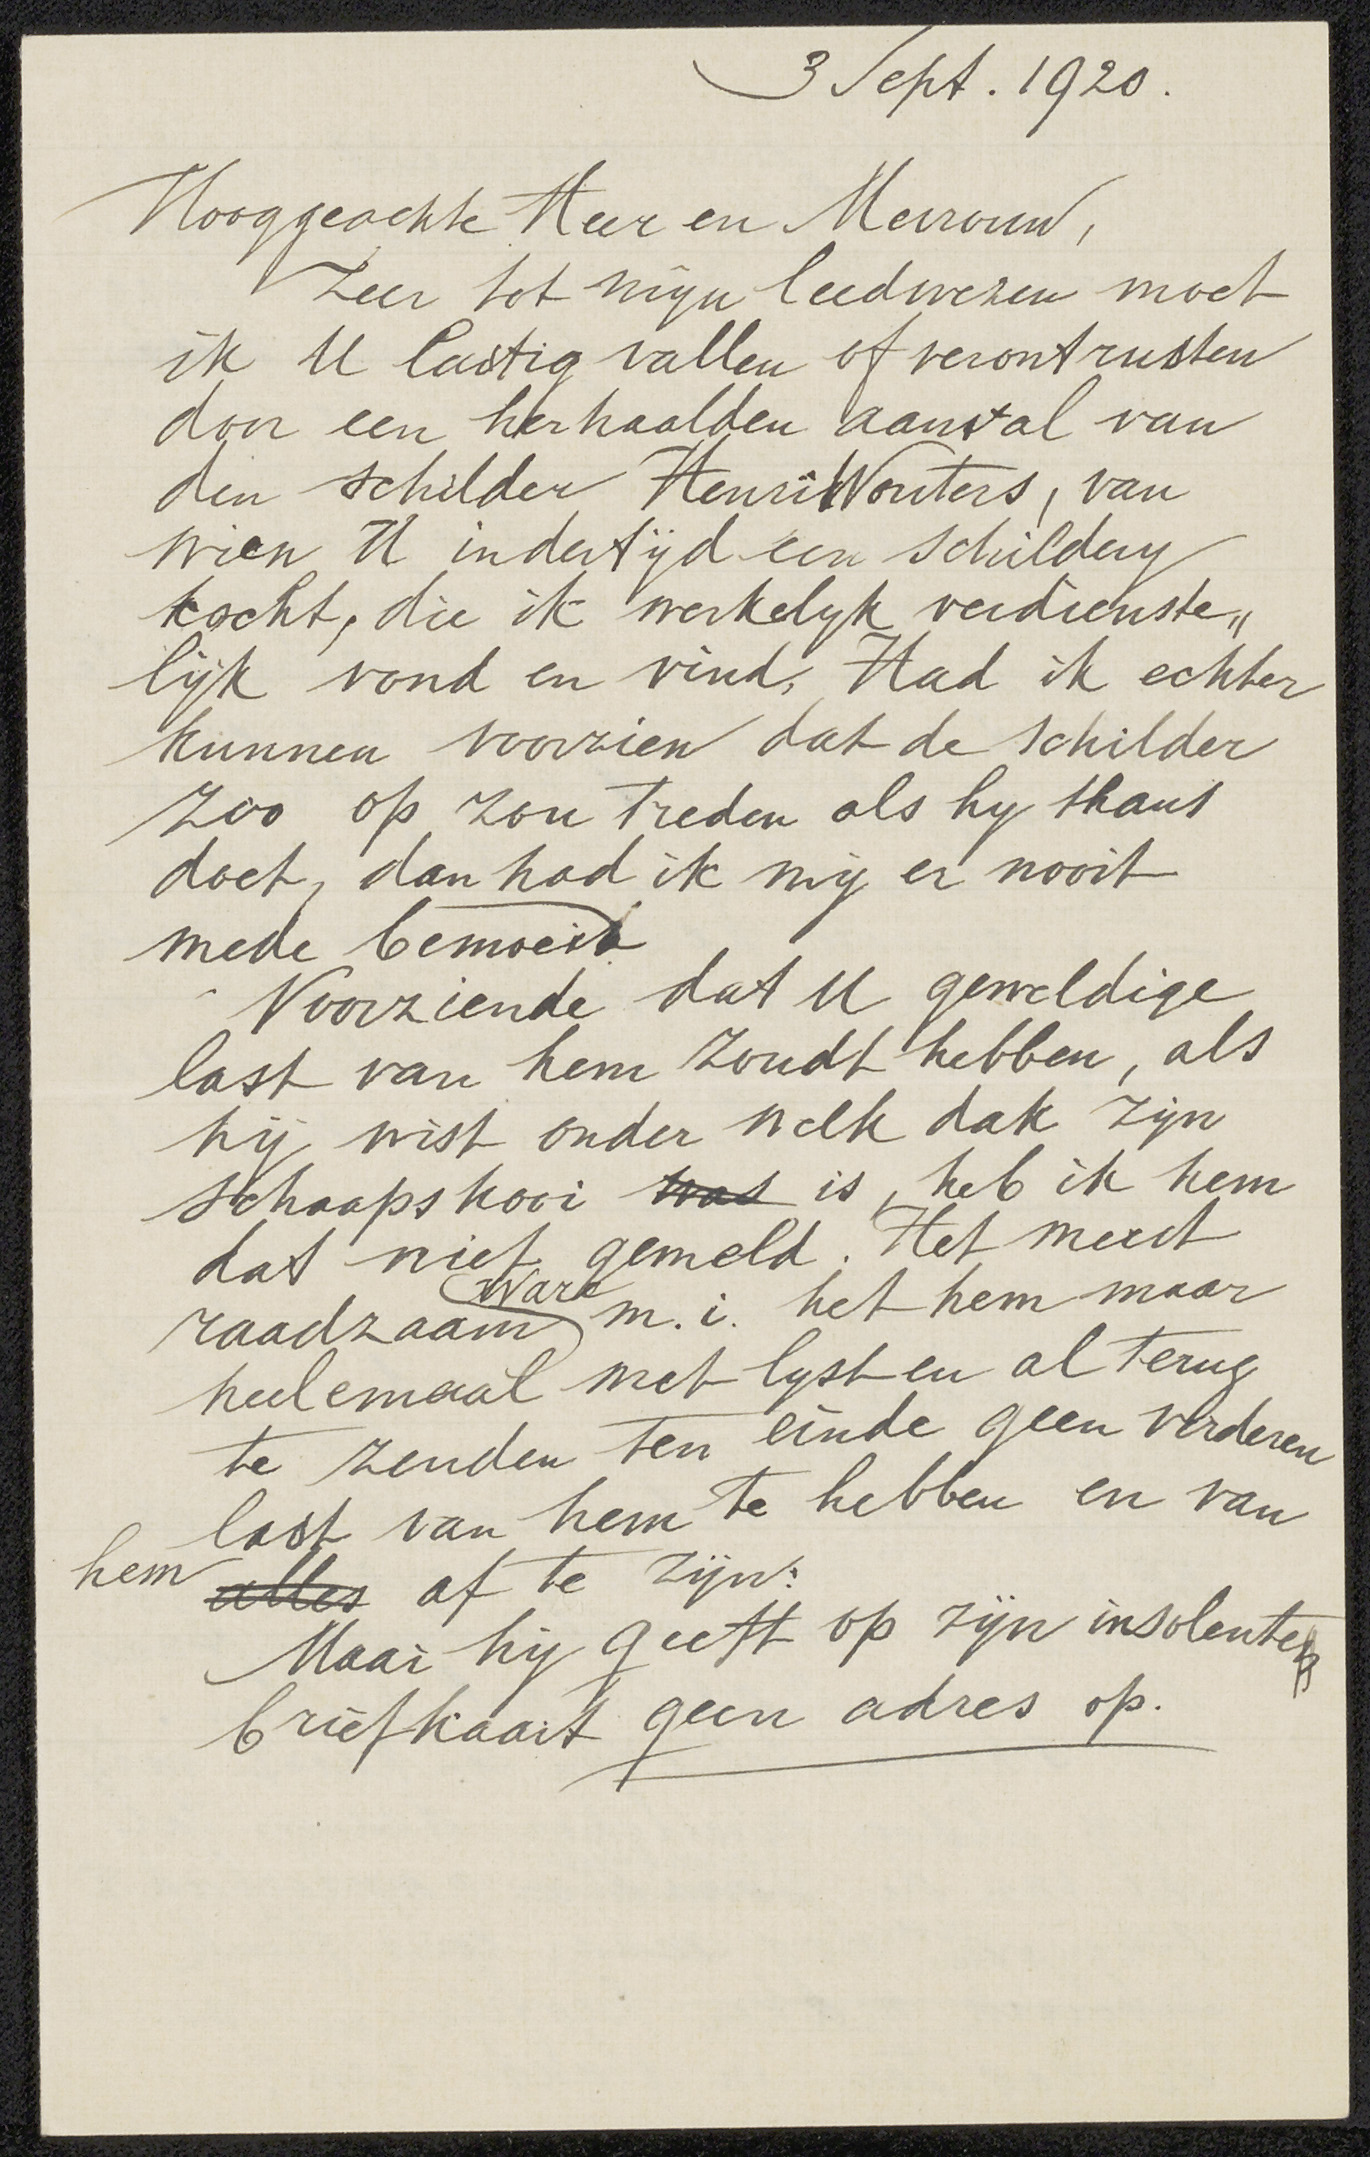 3 Sept. 1920.
Hooggeachte Heer en Mevrouw,
Zeer tot mijn leedwezen moet
ik U lastig vallen of verontrusten
door een herhaalden aanval van
den schilder Henri Wouters, van
wien U indertijd een schildery
kocht, die ik werkelyk verdienste„
lijk vond en vind. Had ik echter
kunnen voorzien dat de schilder
zoo op zou treden als hy thans
doet, dan had ik mij er nooit
mede bemoeid.
Voorziende dat U geweldige
last van hem zoudt hebben, als
hij wist onder welk dak zijn
schaapskooi was is, heb ik hem
dat niet gemeld. Het meest
raadzaam ware m.i. het hem maar
heelemaal met lyst en al terug
te zenden ten einde geen verderen
last van hem te hebben en van
hem alles af te zijn.
Maar hij geeft op zijn insolenten
briefkaart geen adres op.